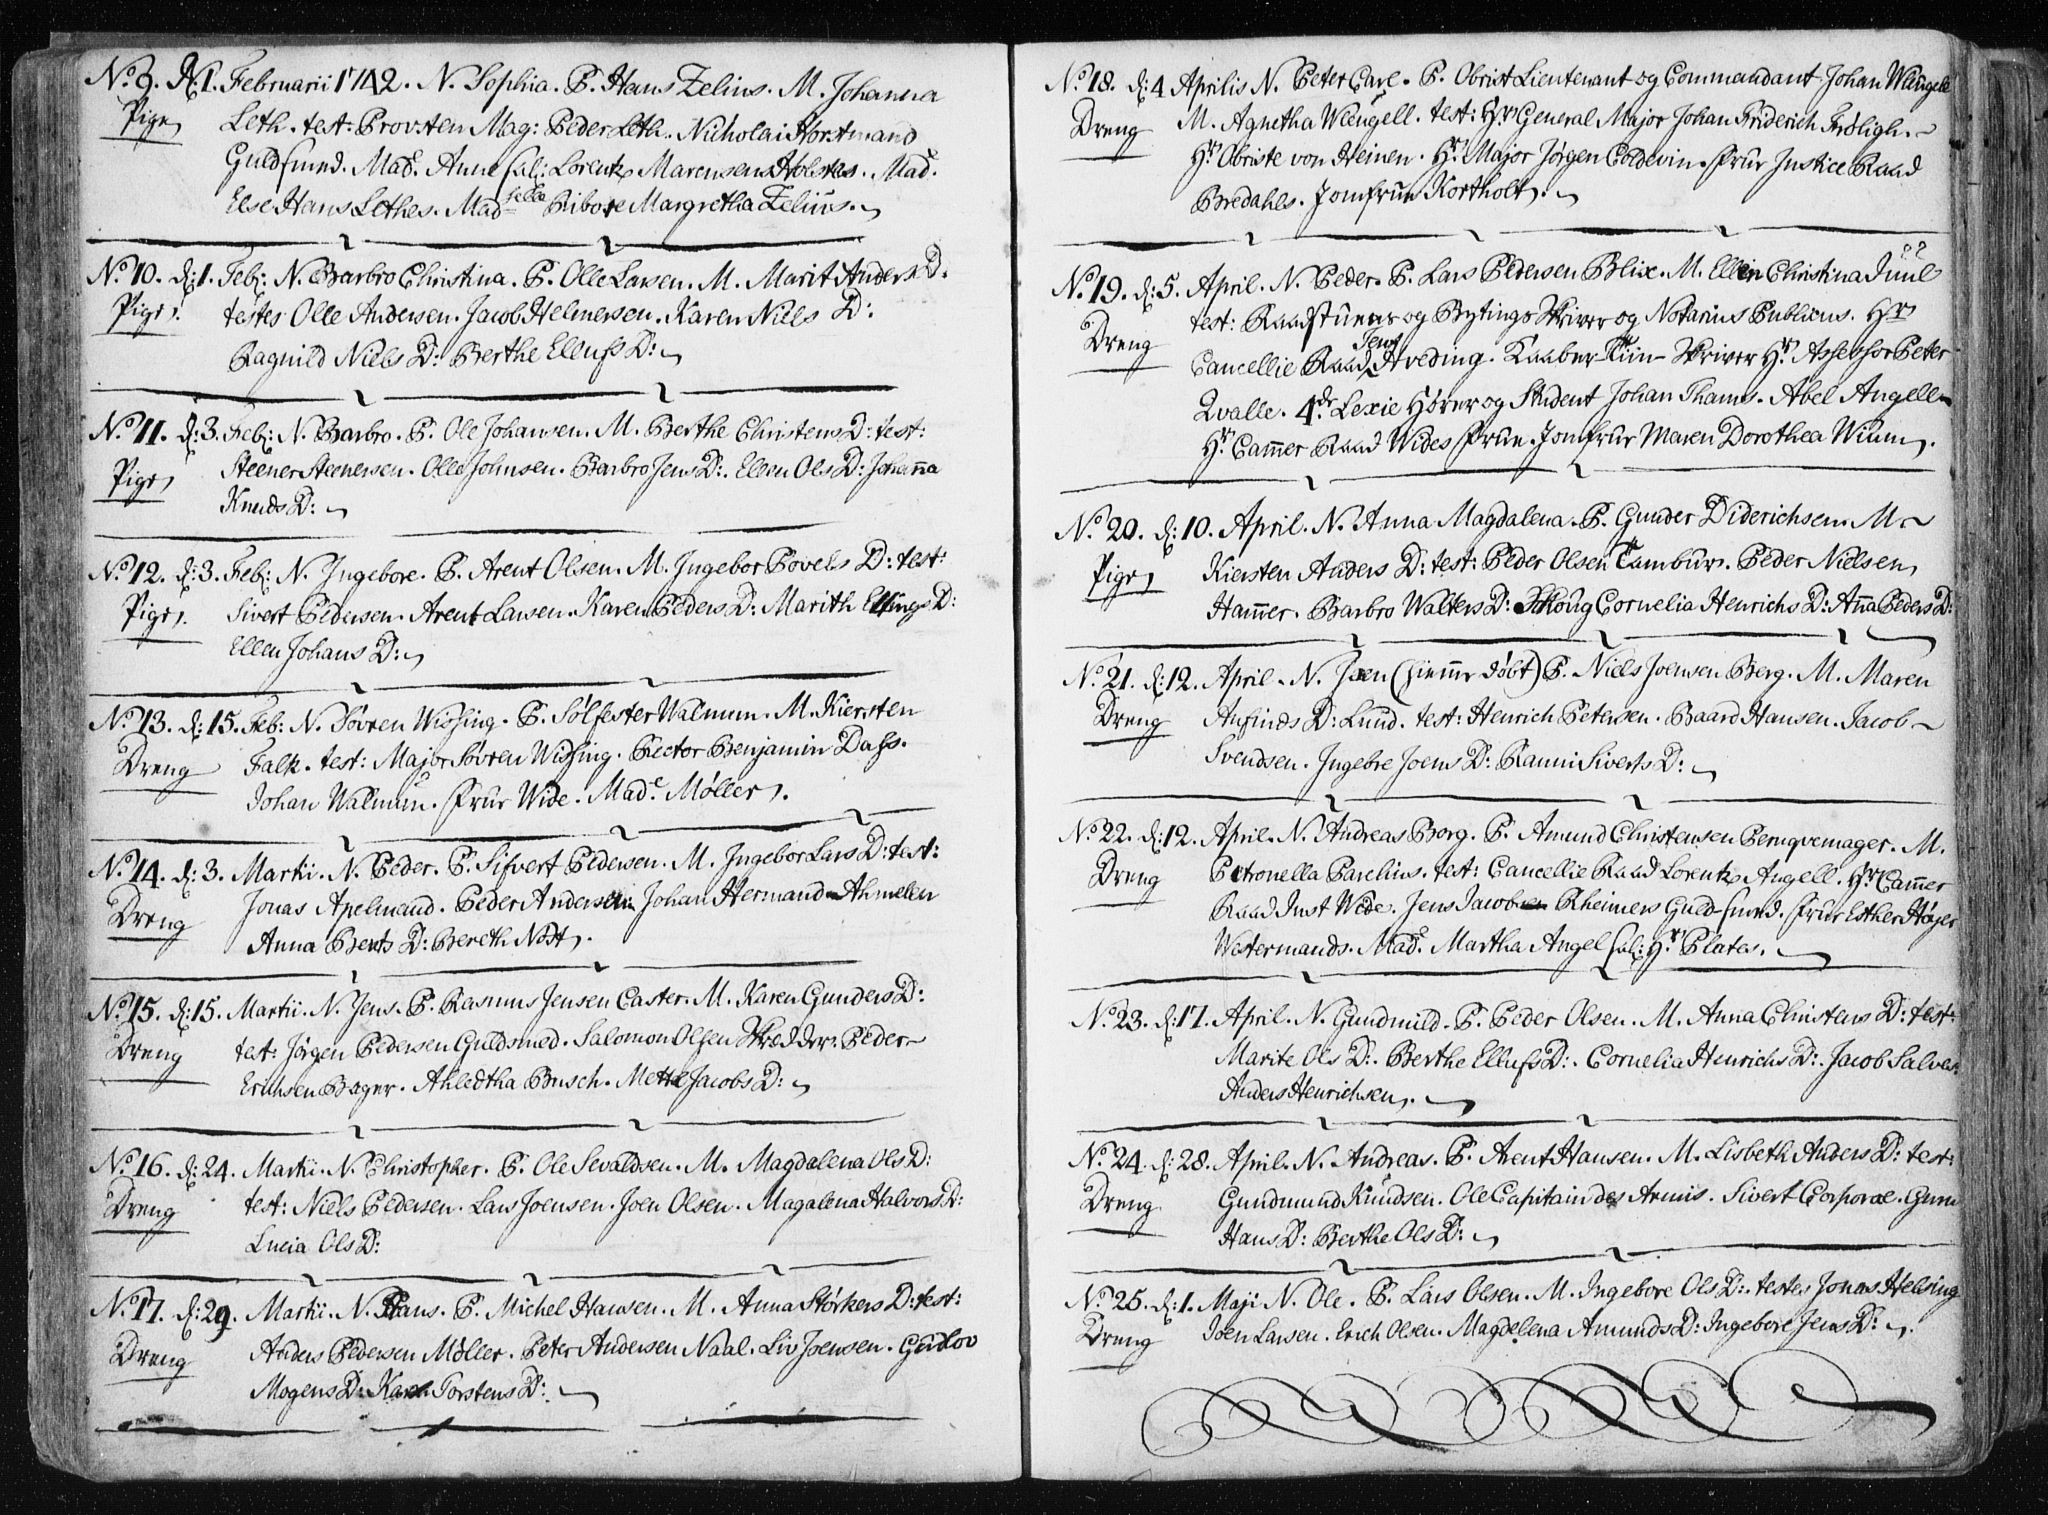 No. 9. d. 1. Februarii 1742. N. Sophia. P. Hans Zelius. M. Johanna
Pige Leth. test: Provsten Mag: Peder Leth. Nicholai Horstmand
Guldsmed. Mad. Anne sal: Lorentz Marensens Holstes. Mad.
Else Hans Lethes. Madselle Ribore Margretha Zelius.
No. 10. d: 1. Feb: N. Barbro Christina. P. Olle Larsen. M. Marit Anders D:
Pige. testes Olle Andersen. Jacob Helmersen. Karen Niels D:
Ragnild Niels D: Berthe Ellufs D:
No. 11. d: 3. Feb: N. Barbro. P. Ole Johansen. M. Berthe Christens D: test:
Pige Steener Steenersen. Olle Johnsen. Barbro Jens D: Ellen Ols D: Johanna
Knuds D:
No. 12. d: 3. Feb: N. Ingebore. P. Arent Olsen. M. Ingebor Povels D: test:
Pige. Sivert Pedersen. Arent Larsen. Karen Peders D: Marith Ellings D:
Ellen Johans D:
No. 13. d: 15. Feb: N. Søvren Wissing. P. Solfester Walmum. M. Kiersten
Dreng Falk. test: Major Søvren Wissing. Rector Benjamin Dass.
Johan Walmum. Frue Wide. Mad. Møller.
No. 14. d: 3. Martii. N. Peder. P. Sifvert Pedersen. M. Ingebor Lars D: test:
Dreng Jonas Apelmand. Peder Andersen. Johan Hermand Ahmelen
Anna Bents D: Bereth Nost.
No. 15. d: 15. Martii. N. Jens. P. Rasmus Jensen Caster. M. Karen Gunders D:
Dreng test: Jørgen Pedersen Guldsmed. Salomon Olsen Skredder. Peder
Erichsen Bager. Ahledtha Busch. Mette Jacobs D:
No. 16. d: 24. Martii. N. Christopher. P. Ole Sevaldsen. M. Magdalena Ols D:
Dreng test: Niels Pedersen. Lars Joensen. Joen Olsen. Magalena Halvors D:
Lucia Ols D:
No. 17. d: 29. Martii. N. Hans. P. Michel Hansen. M. Anna Størkers D: test:
Dreng Anders Pedersen Møller. Peter Andersen Naal. Liv Joensen. Gurlov
Mogens D: Torstens D:
No. 18. d: 4 Aprilis N. Peter Carl. P. Obrist Lieutenant og Commandant Johan Wengell
Dreng M. Agnetha Wengell. test: Hr General Major Johan Friderich Frøligh.
Hr. Obriste von Heinen. Hr. Major Jørgen Coldevin. Frue Justice Raad
Bredahls. Jomfrue Kortholt.
No. 19. d: 5. April. N. Peder. P. Lars Pedersen Blix. M. Ellen Christina Juul
Dreng test: Raadstuens og Bytings Skriver og Notarius Publicus. Hr
Cancellie Raad Jens Hveding. Kaaber-Skriver Hr. Assessor Peter
Qvalle. 4de Lexie Hører og Student Johan Thams. Abel Angell
Hr. Cammer Raad Wides Frue. Jomfrue Maren Dorothea Wium.
No. 20. d: 10. April. N. Anna Magdalena. P. Gunder Diderichsen. M.
Pige Kiersten Anders D: test: Peder Olsen Tambur. Peder Nielsen
Hammer. Barbro Walters D: Skoug Cornelia Henrichs D: Anna Peders D:
No. 21. d: 12. April. N. Joen (hiemme døbt) P. Niels Joensen Berg. M. Maren
Dreng Anfinds D: Lund. test: Henrich Petersen. Baard Hansen. Jacob
Svendsen. Ingebre Joens D: Ranni Siverts D:
No. 22. d: 12. April. N. Andreas Borg. P. Amund Christensen Peruqvemager. M.
Dreng Petronella Parelius. test: Cancellie Raad Lorentz Angell. Hr Cammer
Raad Just Wide. Jens Jacob Rheiners Guld-smed. Frue Esther Høyer
Westermands. Mad. Martha Angel sal: Hr Plates.
No. 23. d: 17. April. N. Gundmild. P. Peder Olsen. M. Anna Christens D: test:
Marite Ols D: Berthe Ellufs D: Cornelia Henrichs D: Jacob Salves.
Anders Henrichsen.
No. 24. d: 28. April. N. Andreas. P. Arent Hansen. M. Lisbeth Anders D: test:
Dreng Gundmund Knudsen. Ole Capitain des Armis. Sivert Corporal. Guru
Hans D: Berthe Ols D:
No. 25. d: 1. Maji N. Ole. P. Lars Olsen. M. Ingebore Ols D: testes Jonas Helsing
Dreng Joen Larsen. Erich Olsen. Magdelena Amunds D: Ingebore Jens D: